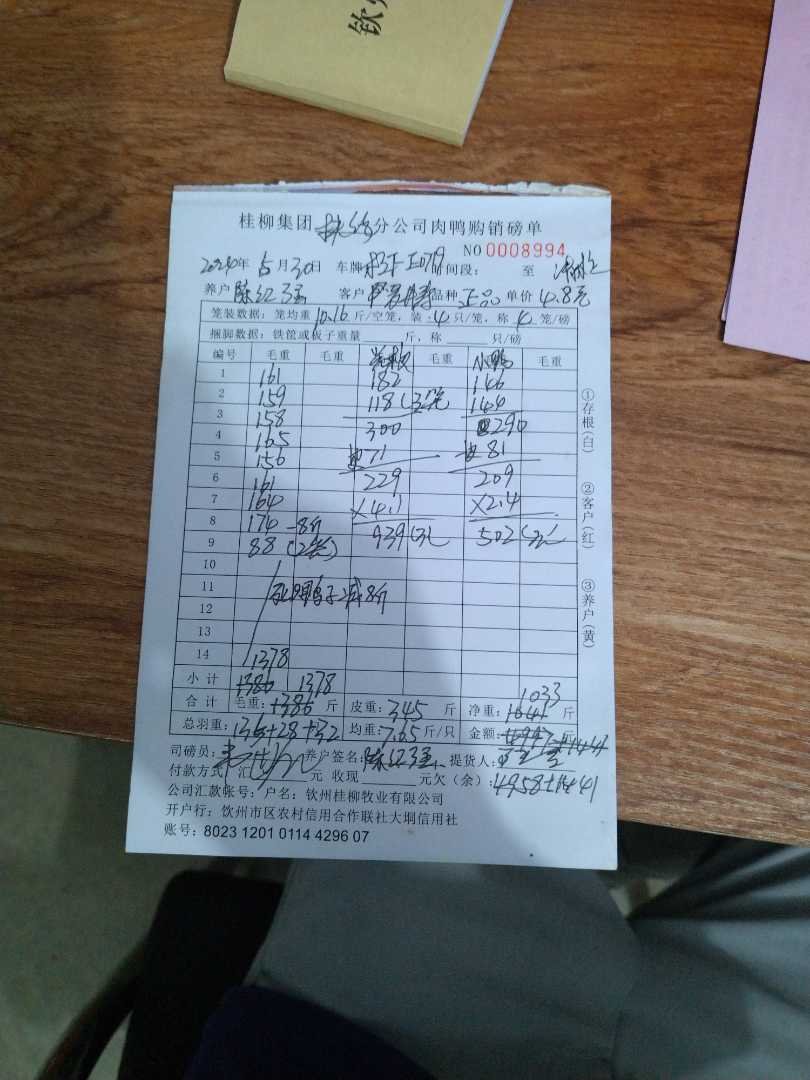 钦
桂柳集团 分公司肉鸭购销磅单
NO 0008994
2024年 5月30日 车牌: 时间段: 至
养户 陈红强 客户 品种 正品 单价 4.8元
笼装数据: 笼均重 10.16 斤/空笼, 装: 4 只/笼, 称 4 笼/磅
捆脚数据: 铁筐或板子重量 斤, 称 只/磅
编号 毛重 毛重 毛重 小鸭 毛重
1 161 182 146
2 159 118 144
3 158 300 290
4 165 71 81
5 156 229 209
6 161 ×4.1 ×2.4
7 164 939 502
8 174 -8斤
9 88
10
11 减8斤
12
13
14 1378
小计 1386 1378
1033
合计 毛重: 1386 斤 皮重: 345 斤 净重: 1041 斤
总羽重: 均重: 7.65 斤/只 金额: 元
司磅员: 养户签名: 陈红强 提货人:
付款方式 汇 元 收现 元欠(余): 4958+1441
公司汇款帐号: 户名: 钦州桂柳牧业有限公司
开户行: 钦州市区农村信用合作联社大垌信用社
账号: 8023 1201 0114 4296 07
①存根(白) ②客户(红) ③养户(黄)